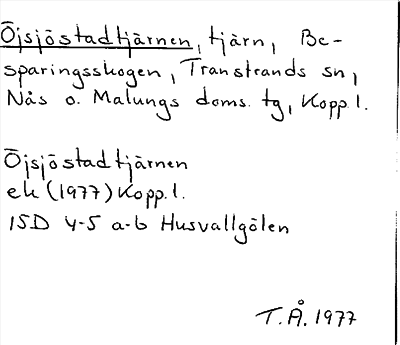 Öjsjöstadtjärnen, tjärn, Be-
sparingsskogen, Transtrands sn,
Nås o. Malungs doms. tg, Kopp.l.
Öjsjöstadtjärnen
ek (1977) Kopp.l.
15D 4-5 a-b Husvallgölen
T.Å. 1977